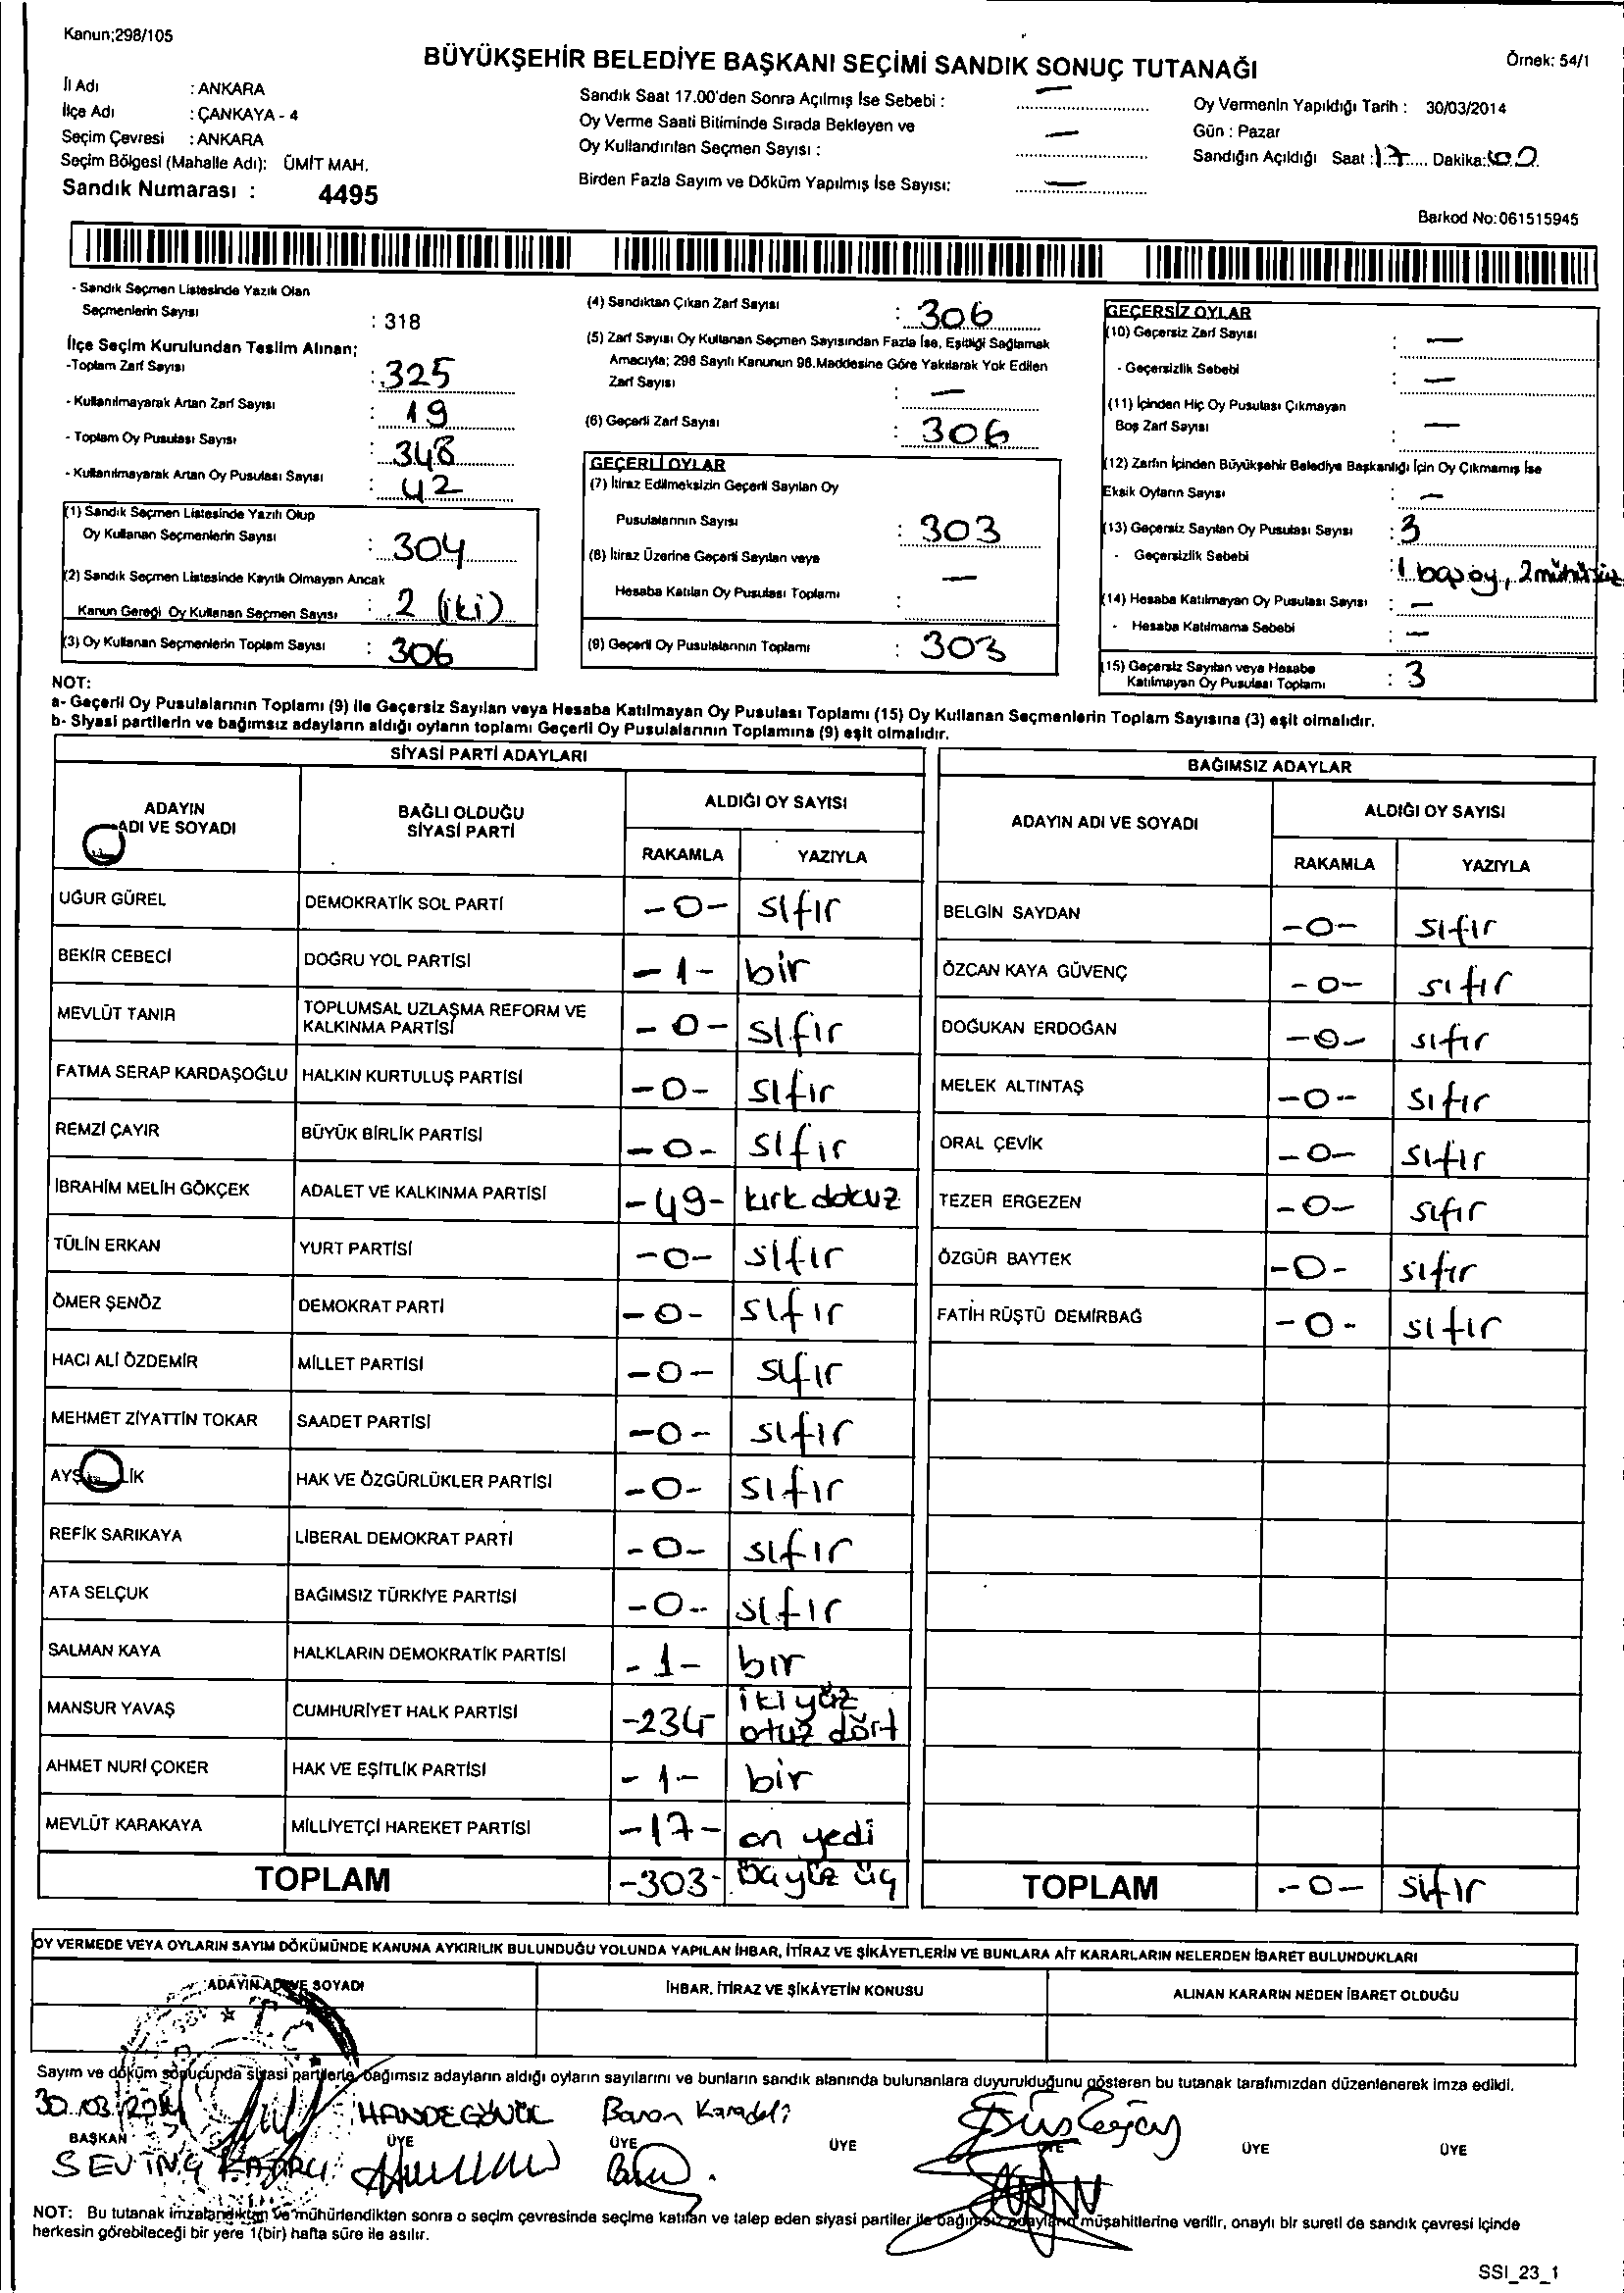 Kanun;298/105
BÜYÜKŞEHİR BELEDİYE BAŞKANI SEÇİMİ SANDIK SONUÇ TUTANAĞI
Örnek: 54/1
İl Adı : ANKARA
İlçe Adı : ÇANKAYA - 4
Seçim Çevresi : ANKARA
Seçim Bölgesi (Mahalle Adı): ÜMİT MAH.
Sandık Numarası : 4495
Sandık Saat 17.00'den Sonra Açılmış İse Sebebi : —
Oy Verme Saati Bitiminde Sırada Bekleyen ve
Oy Kullandırılan Seçmen Sayısı : —
Birden Fazla Sayım ve Döküm Yapılmış İse Sayısı: —
Oy Vermenin Yapıldığı Tarih : 30/03/2014
Gün : Pazar
Sandığın Açıldığı Saat :17 Dakika:00
Barkod No:061515945
- Sandık Seçmen Listesinde Yazılı Olan
Seçmenlerin Sayısı : 318
İlçe Seçim Kurulundan Teslim Alınan;
-Toplam Zarf Sayısı : 325
- Kullanılmayarak Artan Zarf Sayısı : 19
- Toplam Oy Pusulası Sayısı : 348
- Kullanılmayarak Artan Oy Pusulası Sayısı : 42
(1) Sandık Seçmen Listesinde Yazılı Olup
Oy Kullanan Seçmenlerin Sayısı : 304
(2) Sandık Seçmen Listesinde Kayıtlı Olmayan Ancak
Kanun Gereği Oy Kullanan Seçmen Sayısı : 2 (iki)
(3) Oy Kullanan Seçmenlerin Toplam Sayısı : 306
(4) Sandıktan Çıkan Zarf Sayısı : 306
(5) Zarf Sayısı Oy Kullanan Seçmen Sayısından Fazla İse, Eşitliği Sağlamak
Amacıyla; 298 Sayılı Kanunun 98.Maddesine Göre Yakılarak Yok Edilen
Zarf Sayısı : —
(6) Geçerli Zarf Sayısı : 306
GEÇERLİ OYLAR
(7) İtiraz Edilmeksizin Geçerli Sayılan Oy
Pusulalarının Sayısı : 303
(8) İtiraz Üzerine Geçerli Sayılan veya
Hesaba Katılan Oy Pusulası Toplamı : —
(9) Geçerli Oy Pusulalarının Toplamı : 303
GEÇERSİZ OYLAR
(10) Geçersiz Zarf Sayısı : —
- Geçersizlik Sebebi : —
(11) İçinden Hiç Oy Pusulası Çıkmayan
Boş Zarf Sayısı : —
(12) Zarfın İçinden Büyükşehir Belediye Başkanlığı İçin Oy Çıkmamış İse
Eksik Oyların Sayısı : —
(13) Geçersiz Sayılan Oy Pusulası Sayısı : 3
- Geçersizlik Sebebi : 1 boş oy, 2 mühürsüz
(14) Hesaba Katılmayan Oy Pusulası Sayısı : —
- Hesaba Katılmama Sebebi : —
(15) Geçersiz Sayılan veya Hesaba
Katılmayan Oy Pusulası Toplamı : 3
NOT:
a- Geçerli Oy Pusulalarının Toplamı (9) ile Geçersiz Sayılan veya Hesaba Katılmayan Oy Pusulası Toplamı (15) Oy Kullanan Seçmenlerin Toplam Sayısına (3) eşit olmalıdır.
b- Siyasi partilerin ve bağımsız adayların aldığı oyların toplamı Geçerli Oy Pusulalarının Toplamına (9) eşit olmalıdır.
SİYASİ PARTİ ADAYLARI
ADAYIN ADI VE SOYADI
BAĞLI OLDUĞU SİYASİ PARTİ
ALDIĞI OY SAYISI
RAKAMLA YAZIYLA
UĞUR GÜREL DEMOKRATİK SOL PARTİ -0- sıfır
BEKİR CEBECİ DOĞRU YOL PARTİSİ -1- bir
MEVLÜT TANIR TOPLUMSAL UZLAŞMA REFORM VE KALKINMA PARTİSİ -0- sıfır
FATMA SERAP KARDAŞOĞLU HALKIN KURTULUŞ PARTİSİ -0- sıfır
REMZİ ÇAYIR BÜYÜK BİRLİK PARTİSİ -0- sıfır
İBRAHİM MELİH GÖKÇEK ADALET VE KALKINMA PARTİSİ -49- kırk dokuz
TÜLİN ERKAN YURT PARTİSİ -0- sıfır
ÖMER ŞENÖZ DEMOKRAT PARTİ -0- sıfır
HACI ALİ ÖZDEMİR MİLLET PARTİSİ -0- sıfır
MEHMET ZİYATTİN TOKAR SAADET PARTİSİ -0- sıfır
HAK VE ÖZGÜRLÜKLER PARTİSİ -0- sıfır
REFİK SARIKAYA LİBERAL DEMOKRAT PARTİ -0- sıfır
ATA SELÇUK BAĞIMSIZ TÜRKİYE PARTİSİ -0- sıfır
SALMAN KAYA HALKLARIN DEMOKRATİK PARTİSİ -1- bir
MANSUR YAVAŞ CUMHURİYET HALK PARTİSİ -234- iki yüz otuz dört
AHMET NURİ ÇOKER HAK VE EŞİTLİK PARTİSİ -1- bir
MEVLÜT KARAKAYA MİLLİYETÇİ HAREKET PARTİSİ -17- on yedi
TOPLAM -303- üç
BAĞIMSIZ ADAYLAR
ADAYIN ADI VE SOYADI
ALDIĞI OY SAYISI
RAKAMLA YAZIYLA
BELGİN SAYDAN -0- sıfır
ÖZCAN KAYA GÜVENÇ -0- sıfır
DOĞUKAN ERDOĞAN -0- sıfır
MELEK ALTINTAŞ -0- sıfır
ORAL ÇEVİK -0- sıfır
TEZER ERGEZEN -0- sıfır
ÖZGÜR BAYTEK -0- sıfır
FATİH RÜŞTÜ DEMİRBAĞ -0- sıfır
TOPLAM -0- sıfır
OY VERMEDE VEYA OYLARIN SAYIM DÖKÜMÜNDE KANUNA AYKIRILIK BULUNDUĞU YOLUNDA YAPILAN İHBAR, İTİRAZ VE ŞİKÂYETLERİN VE BUNLARA AİT KARARLARIN NELERDEN İBARET BULUNDUKLARI
ADAYIN ADI VE SOYADI
İHBAR, İTİRAZ VE ŞİKÂYETİN KONUSU
ALINAN KARARIN NEDEN İBARET OLDUĞU
Sayım ve döküm sonucunda siyasi partilerle bağımsız adayların aldığı oyların sayılarını ve bunların sandık alanında bulunanlara duyurulduğunu gösteren bu tutanak tarafımızdan düzenlenerek imza edildi.
30.03.2014 HANDE GÖNÜL Baran
BAŞKAN ÜYE ÜYE ÜYE ÜYE ÜYE ÜYE
SEVİNÇ
NOT: Bu tutanak imzalandıktan ve mühürlendikten sonra o seçim çevresinde seçime katılan ve talep eden siyasi partiler ile bağımsız adayların müşahitlerine verilir, onaylı bir sureti de sandık çevresi içinde
herkesin görebileceği bir yere 1(bir) hafta süre ile asılır.
SSI_23_1